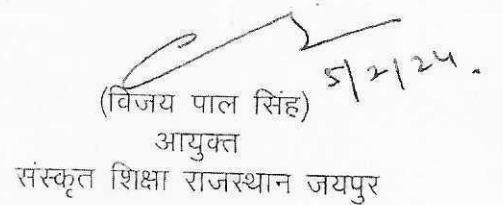 5/2/24.
(विजय पाल सिंह)
आयुक्त
संस्कृत शिक्षा राजस्थान जयपुर